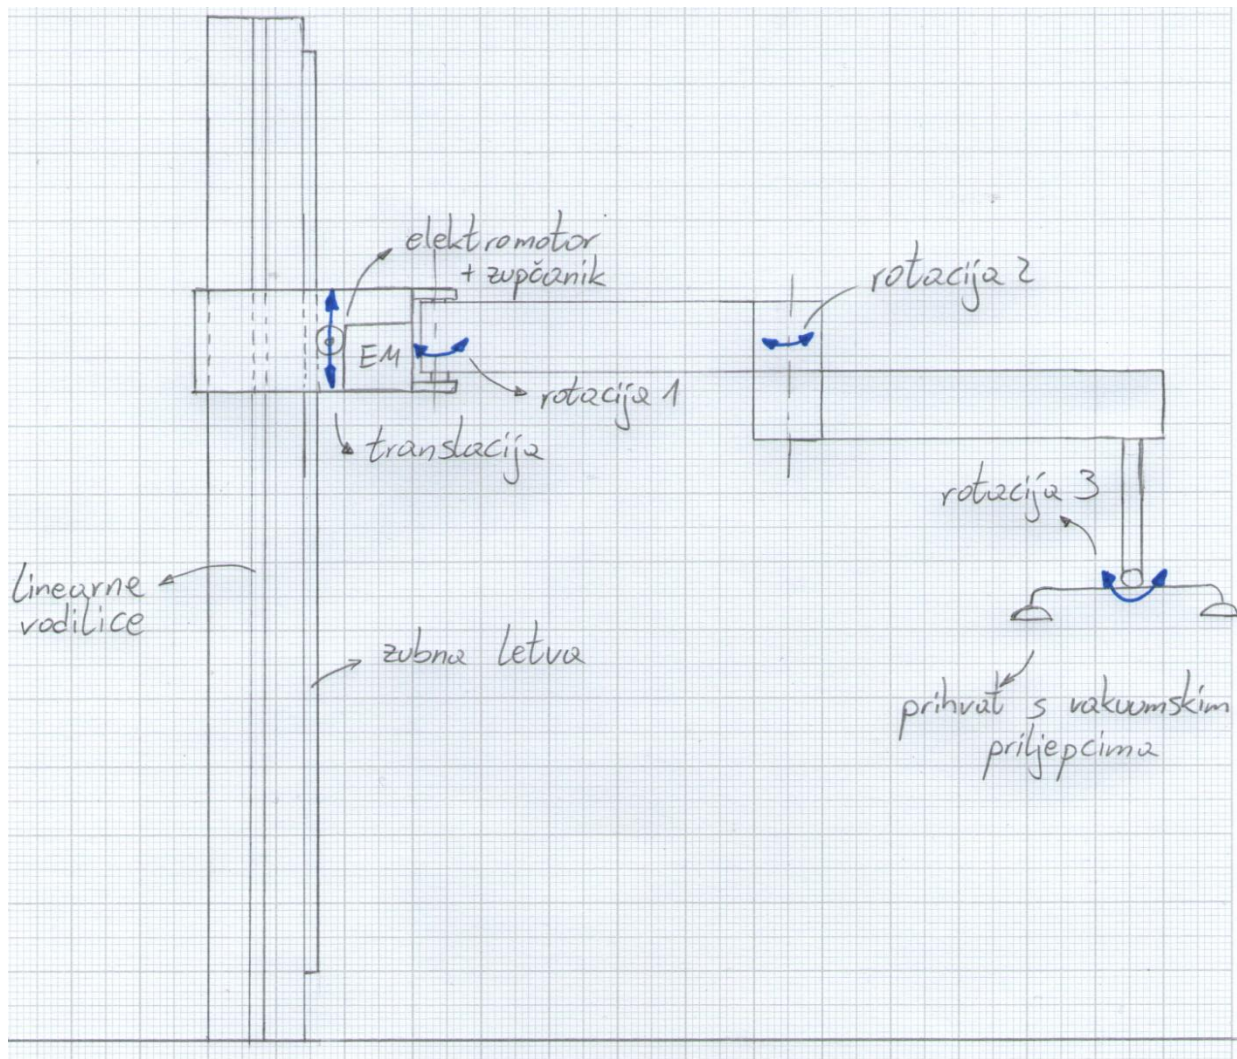 elektromotor
+ zupčanik
rotacija 2
EM
rotacija 1
translacija
rotacija 3
linearne
vodilice
zubna letva
prihvat s vakuumskim
priljepcima